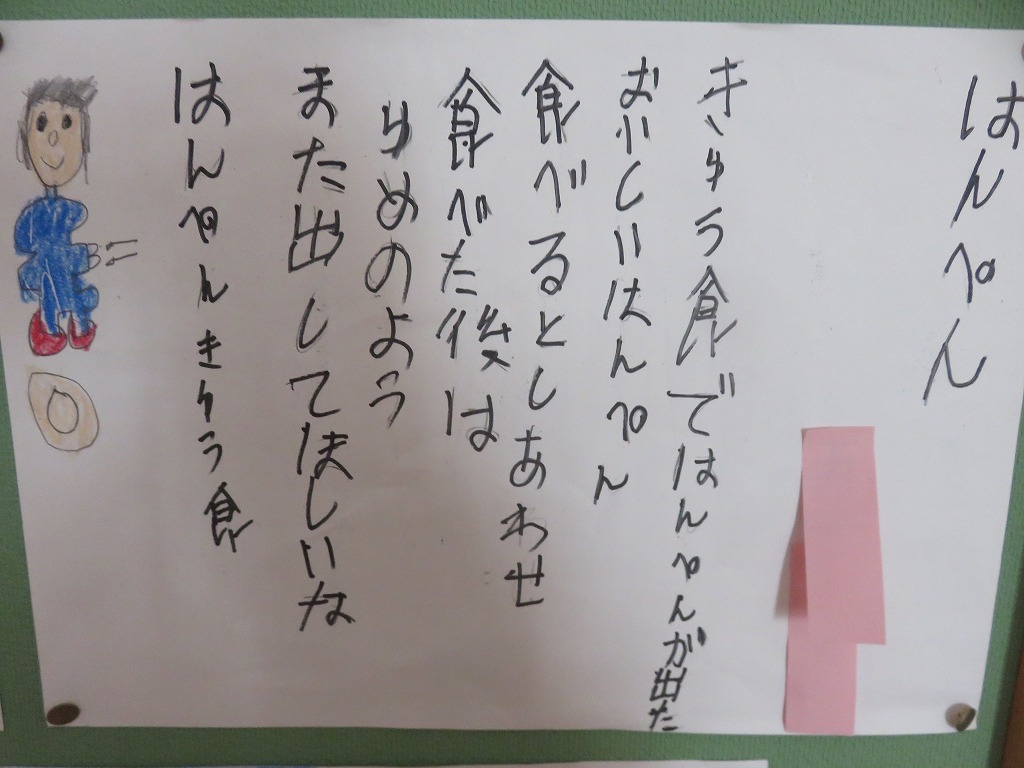 はんぺん
きゅう食ではんぺんが出た
おいしいはんぺん
食べるとしあわせ
食べた後は
ゆめのよう
また出してほしいな
はんぺんきゅう食